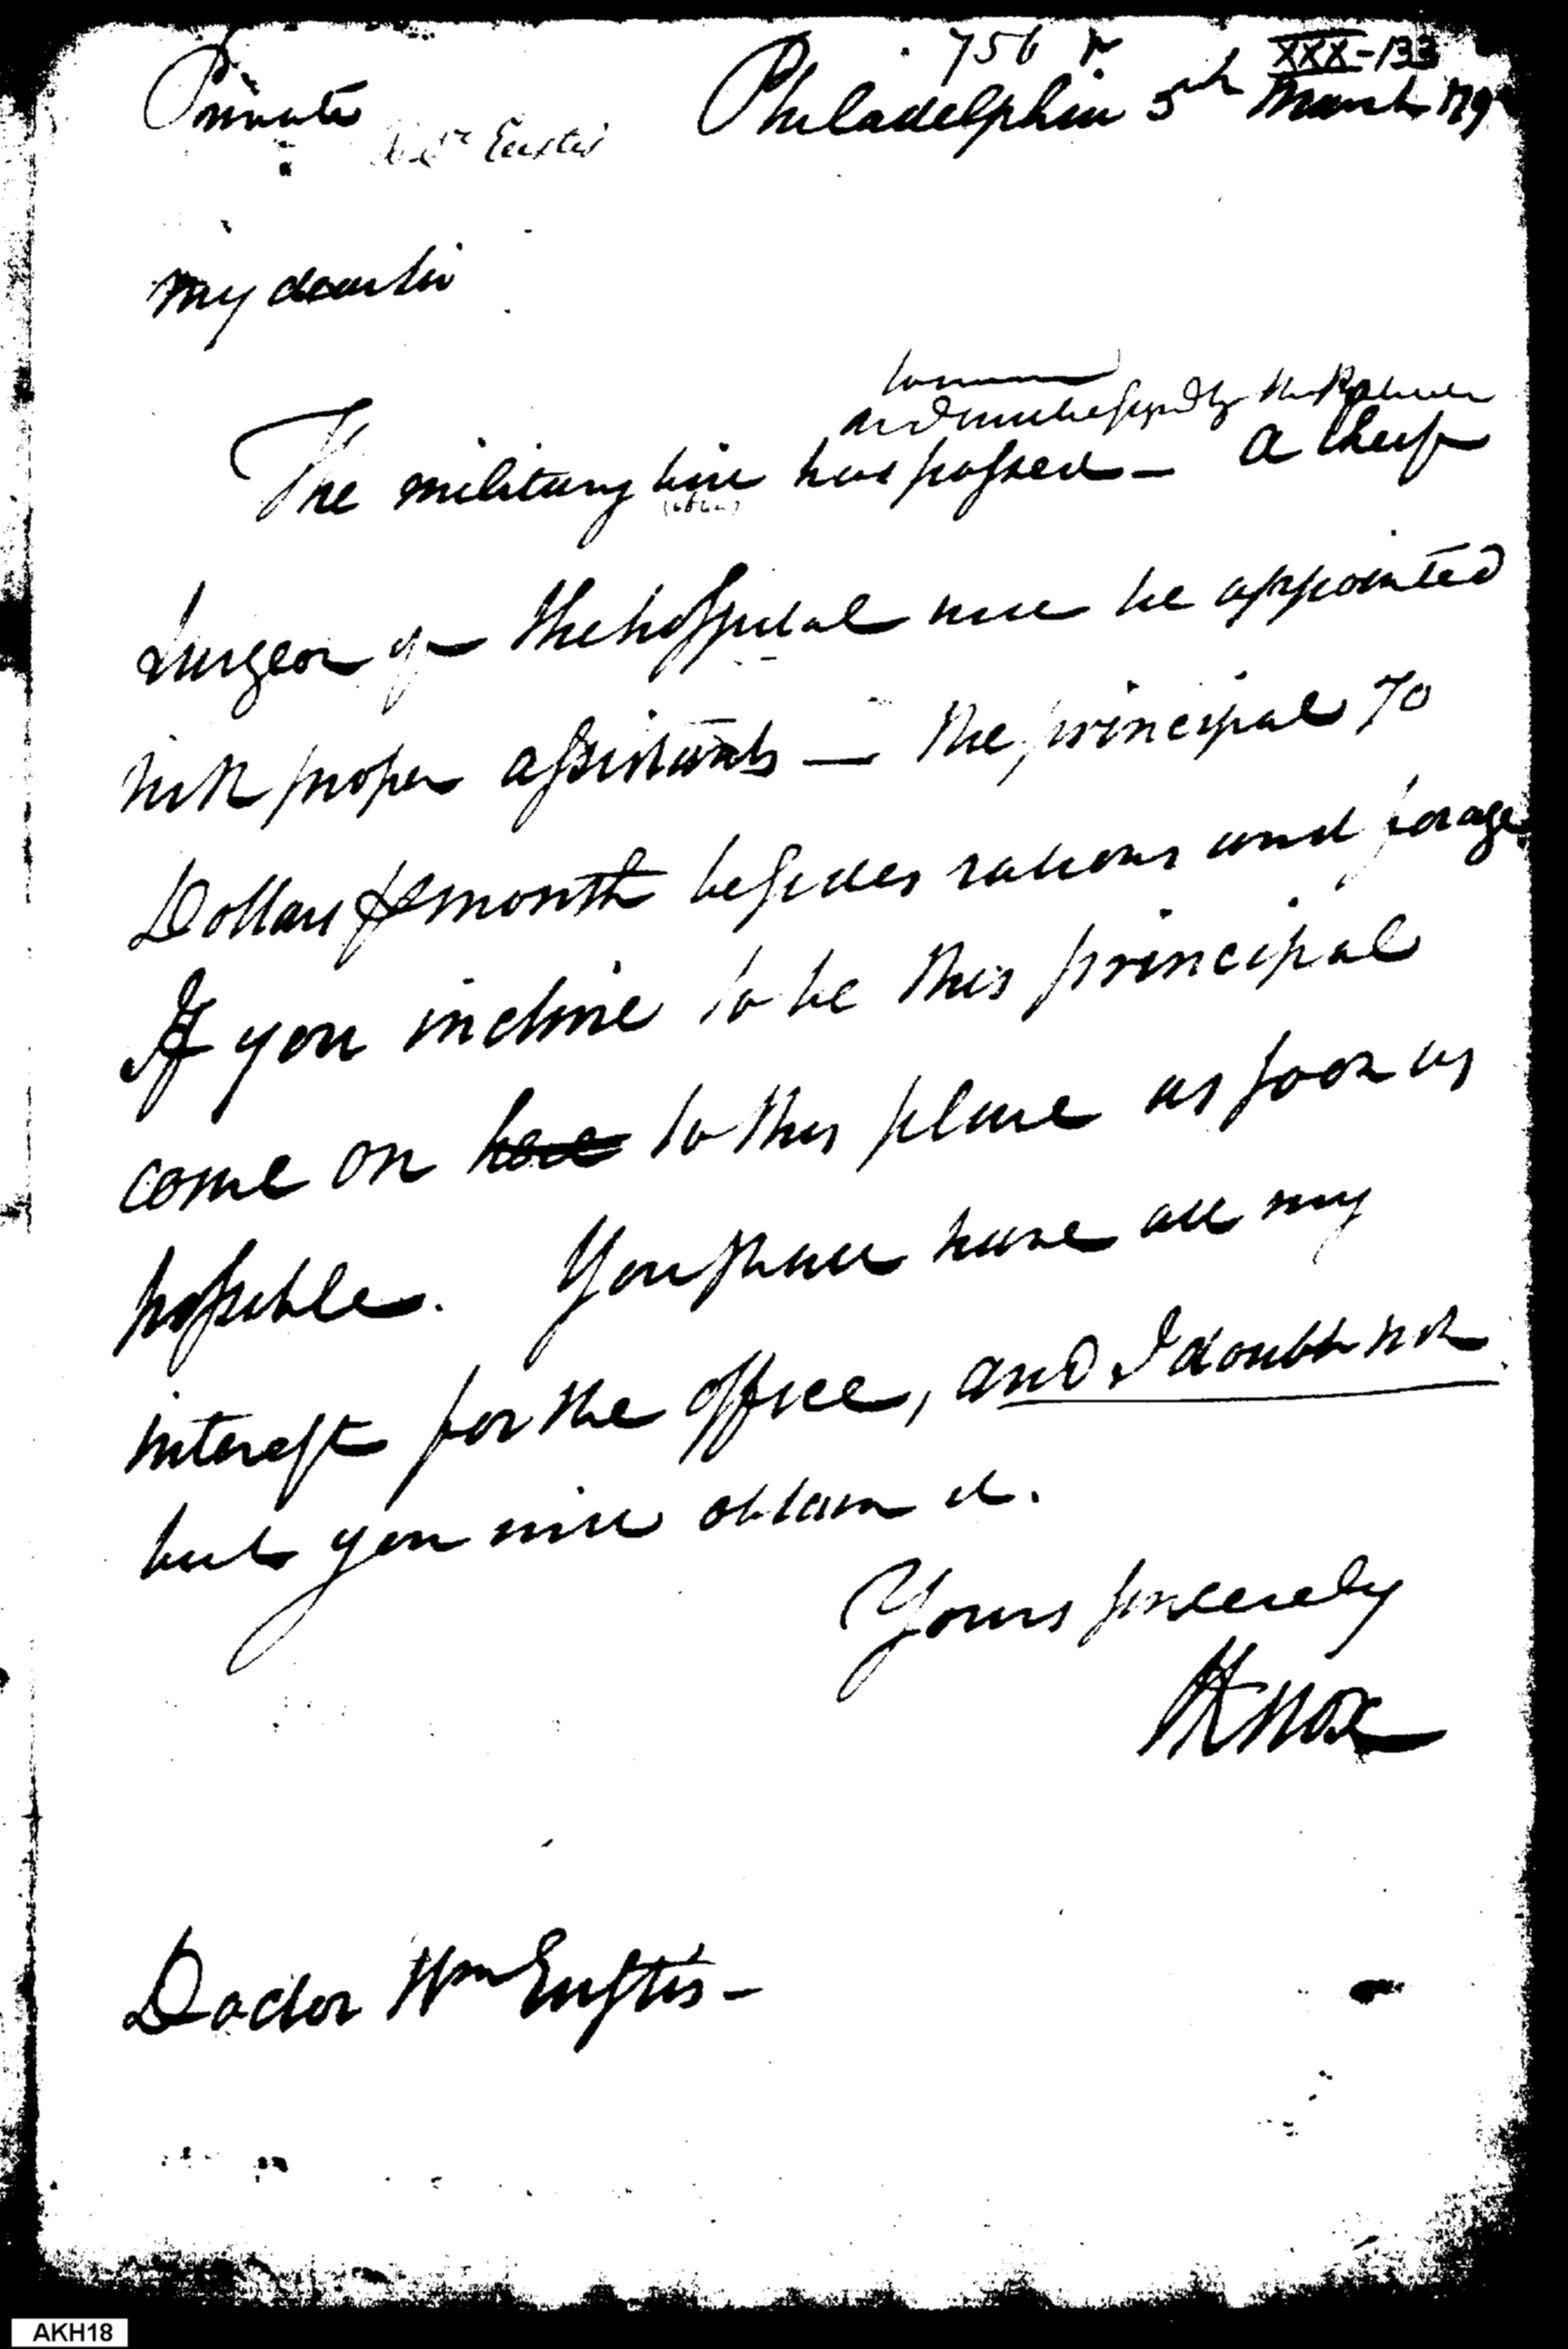 756 r XXX-133
Private Philadelphia 5th March 179
Eustis
My dear sir
tomorrow
and will be signed by the President
The military bill has passed — a cheif
Surgeon of the hospital will be appointed
with proper assistants — the principal 70
Dollars ⅌ month besides rations and forage
If you incline to be this principal
come on here to this place as soon as
possible. You shall have all my
interest for the office, and I doubt not
but you will obtain it.
Yours sincerely
HKnox
Doctor Wm Eustis —
AKH18